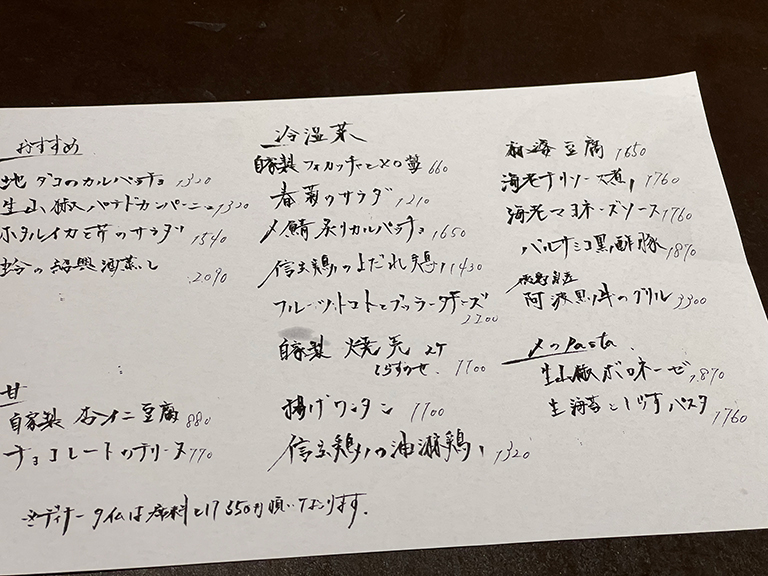 おすすめ
地ダコのカルパッチョ 1320
生山椒パテドカンパーニュ 1320
ホタルイカと芹のサラダ 1540
蛤の紹興酒蒸し 2090
甘
自家製 杏仁豆腐 880
チョコレートのテリーヌ 770
冷温菜
自家製フォカッチャ 660
春菊のサラダ 1210
〆鯖炙りカルパッチョ 1650
信玄鶏のよだれ鶏 1430
フルーツトマトとブッラータチーズ 2200
自家製 焼売 2ケ
しらすのせ 1100
揚げワンタン 1100
信玄鶏の油淋鶏 1320
麻婆豆腐 1650
海老チリソース煮 1760
海老マヨネーズソース 1760
バルサミコ黒酢豚 1870
阿波黒牛のグリル 3300
〆のPasta
生山椒ボロネーゼ 1870
生海苔としらすパスタ 1760
※ディナータイムは席料として550円頂いております.